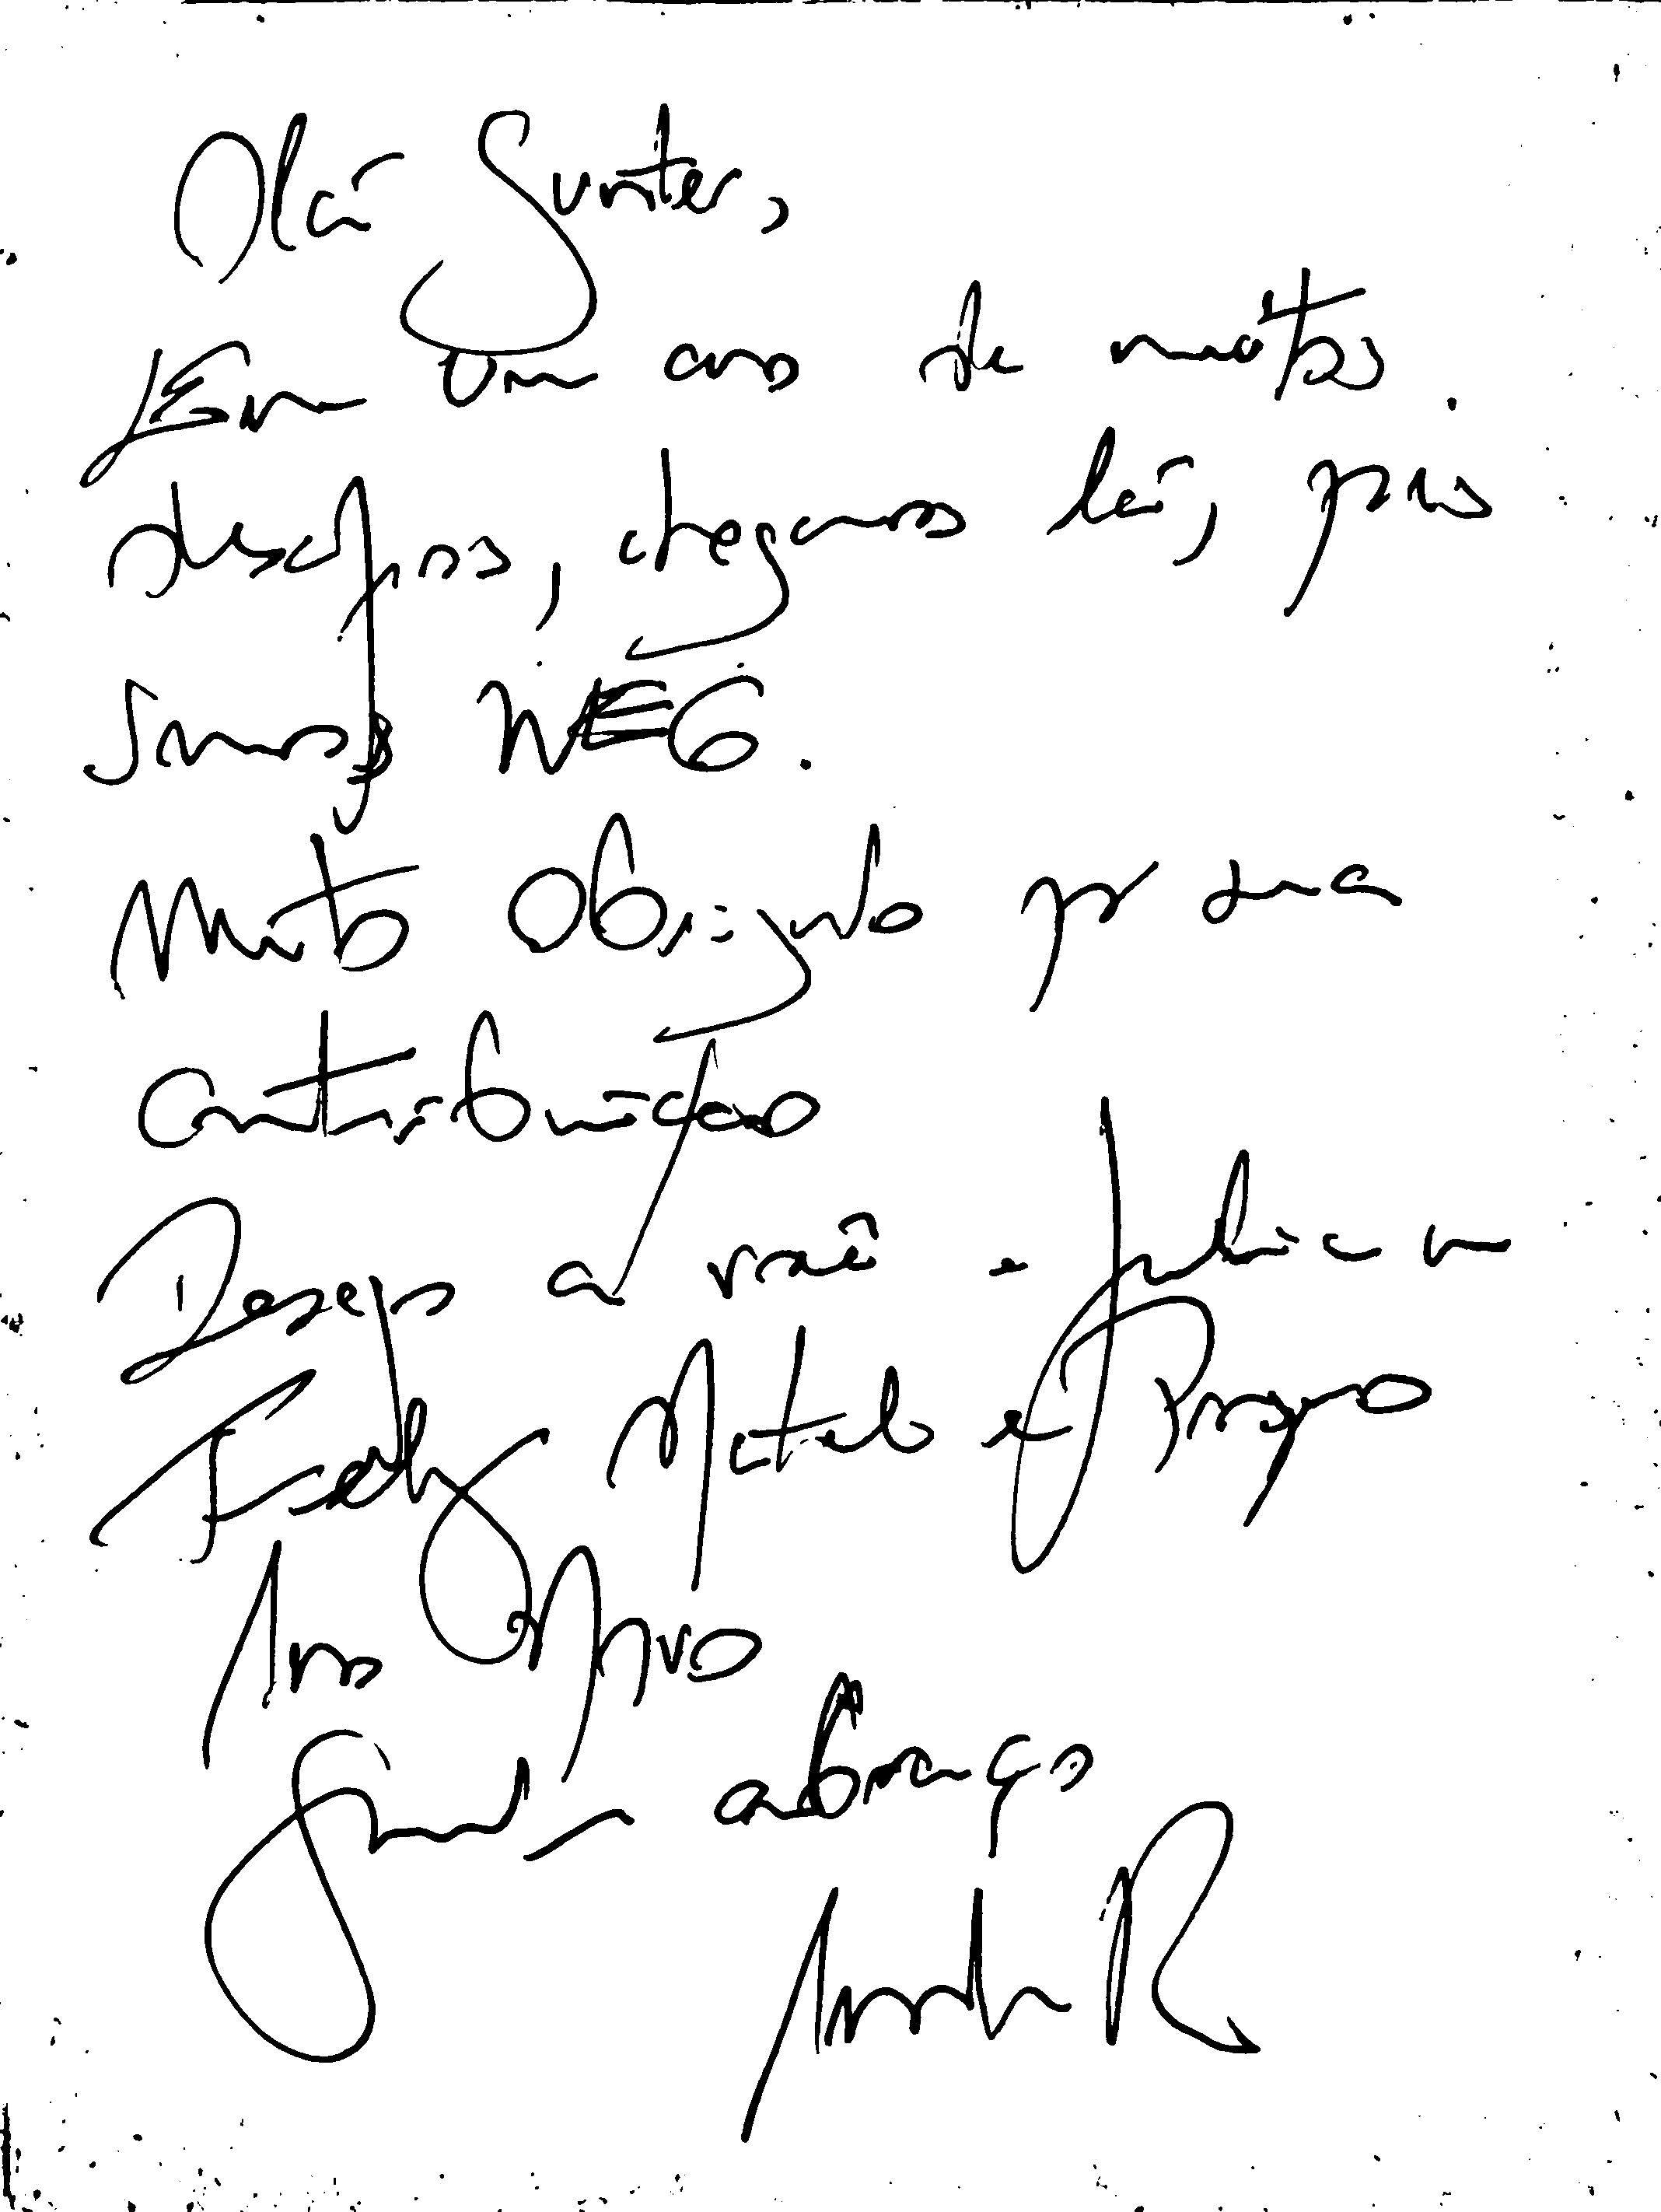 Olá Gunter,
Em um ano de muitos
desafios, chegamos lá, pois
somos WEG.
Muito Obrigado por sua
contribuição
Desejo a você e família um
Feliz Natal e Prospero
Ano Novo
Grande abraço